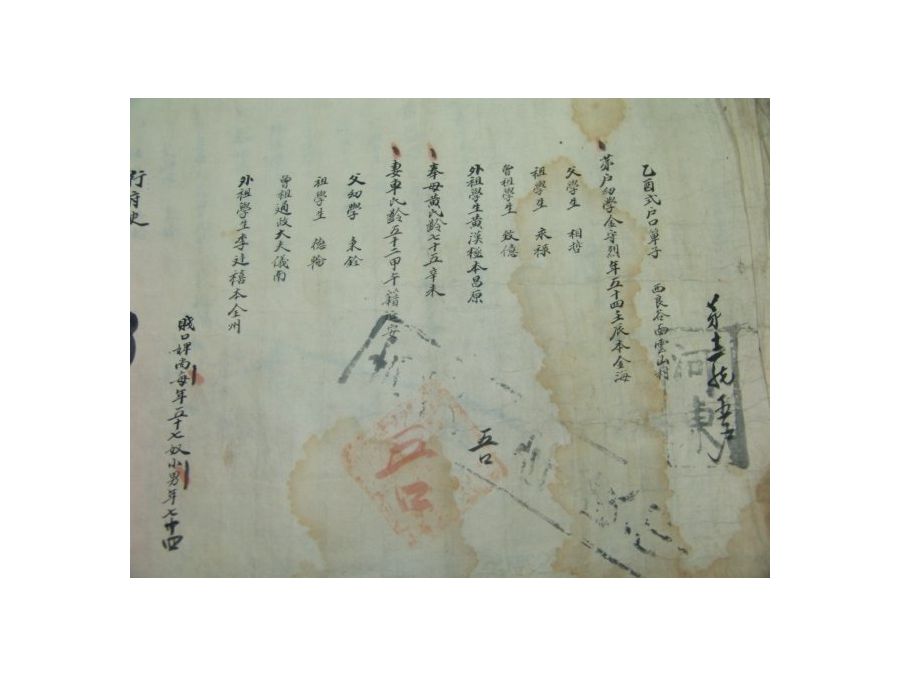 第十一統第五戶
乙酉式戶口單子 西良谷面雲山村
第 戶幼學金守烈年五十四壬辰本金海
父學生 相哲
祖學生 永祿
曾祖學生 致億
外祖學生黃漢 本昌原
奉母黃氏齡七十五辛未
妻車氏齡五十二甲午籍延安
父幼學 東銓
祖學生 德翰
曾祖通政大夫儀南
外祖學生李廷 本全州
賤口婢尚每年五十七奴小男年七十四
行府使
五口
五口
河東